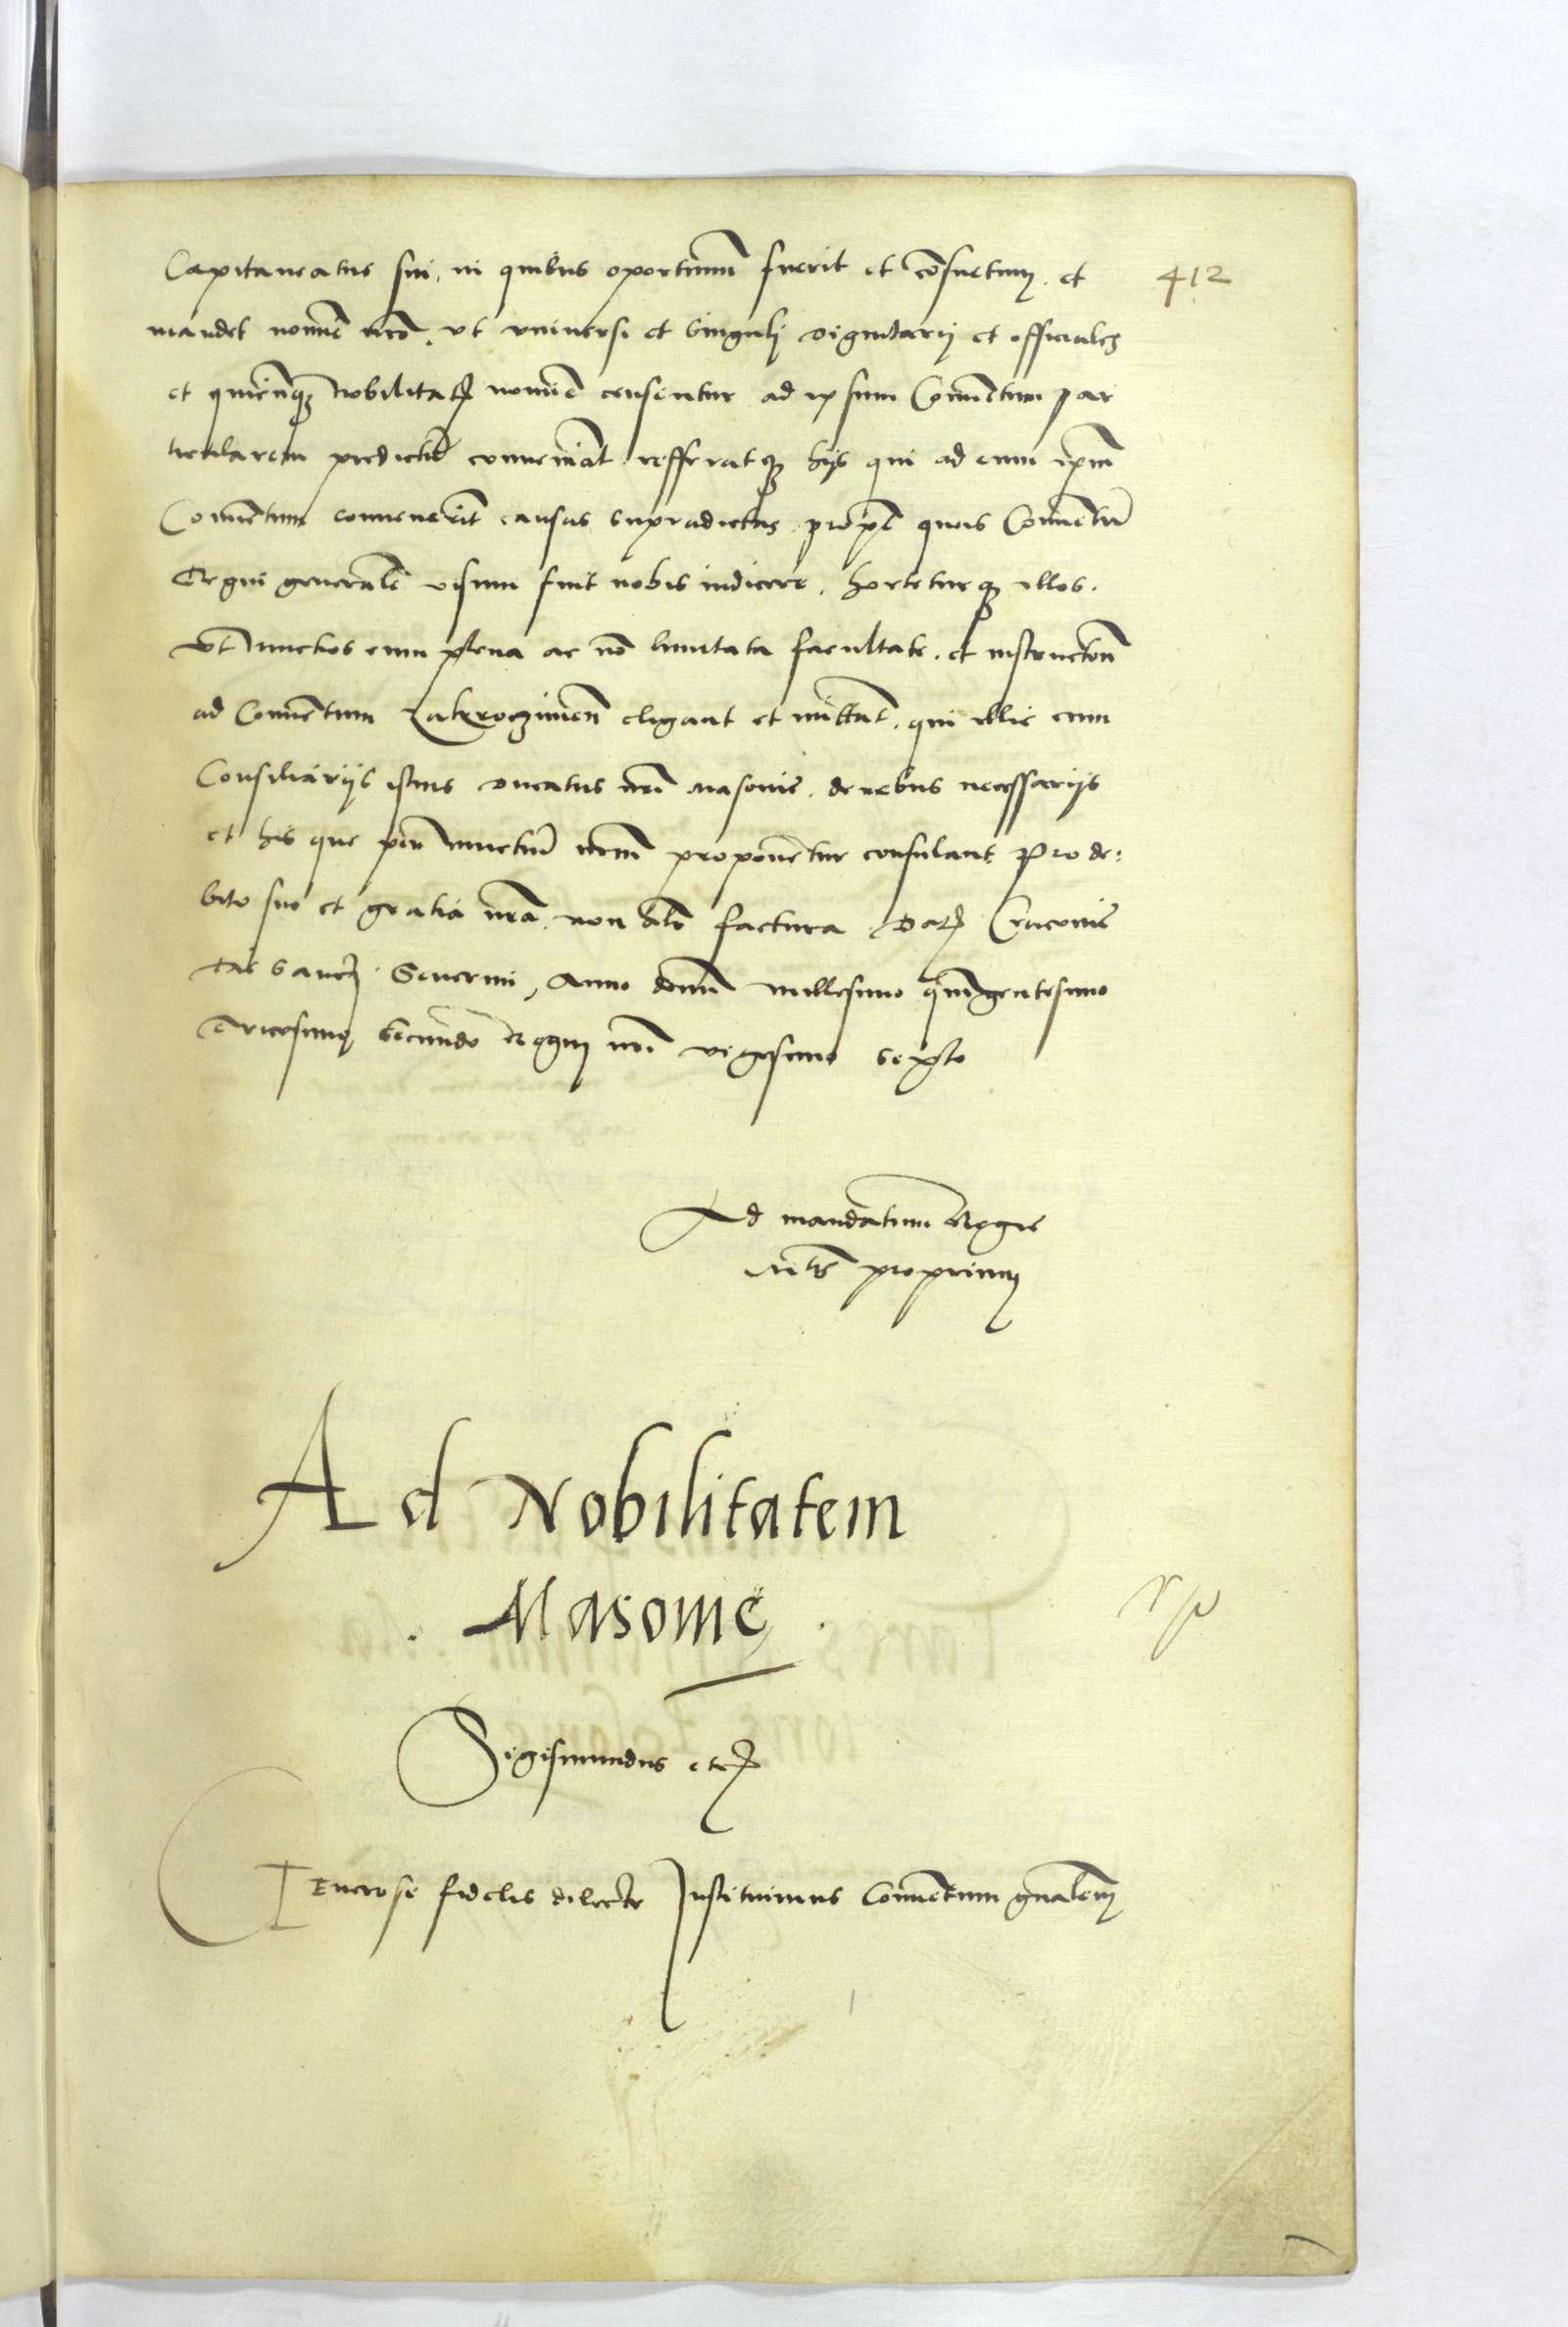 Capitaneatus sui, in quibus oportunum fuerit et cõsuetum. et
412
mandet nomĩe nrõ. vt vniuersi et singulj dignitarij et officiales
et quicũqꝫ nobilitatꝭ nomĩe censentur ad ipsum Conuẽtum par
ticularem predictũ conueniãt refferatqꝫ hijs qui ad eum ip̃m
Conuẽtum conuenerĩt causas supradictas propt̃ quas Conuẽtũ
Regni generalẽ visum fuit nobis indicere. horteturqꝫ illos.
vt̃ nunctios cum plena ac nõ limitata facultate. et instructiõn
ad Conuẽtum Zakroczimeñ eligant et mittãt. qui illic cum
Consiliarijs istius ducatus nrĩ Masouie. de rebus necessarijs
et his que per nunctiũ nrũm proponẽtur consulant Pro de:
bito suo et gratia nrã. non aliẽ factura. Datꝭ Cracouie
die sanctj Seuerini, Anno domĩ millesimo quĩgentesimo
Tricesimo secundo Regni nrĩ vigesimo sexto
Ad mandatum Regie
Mtis̃ proprium
Ad Nobilitatem
. Masouie .
Sigismundus etcꝭ
Generose fidelis dilecte Instituimus Conuẽtum gñalem